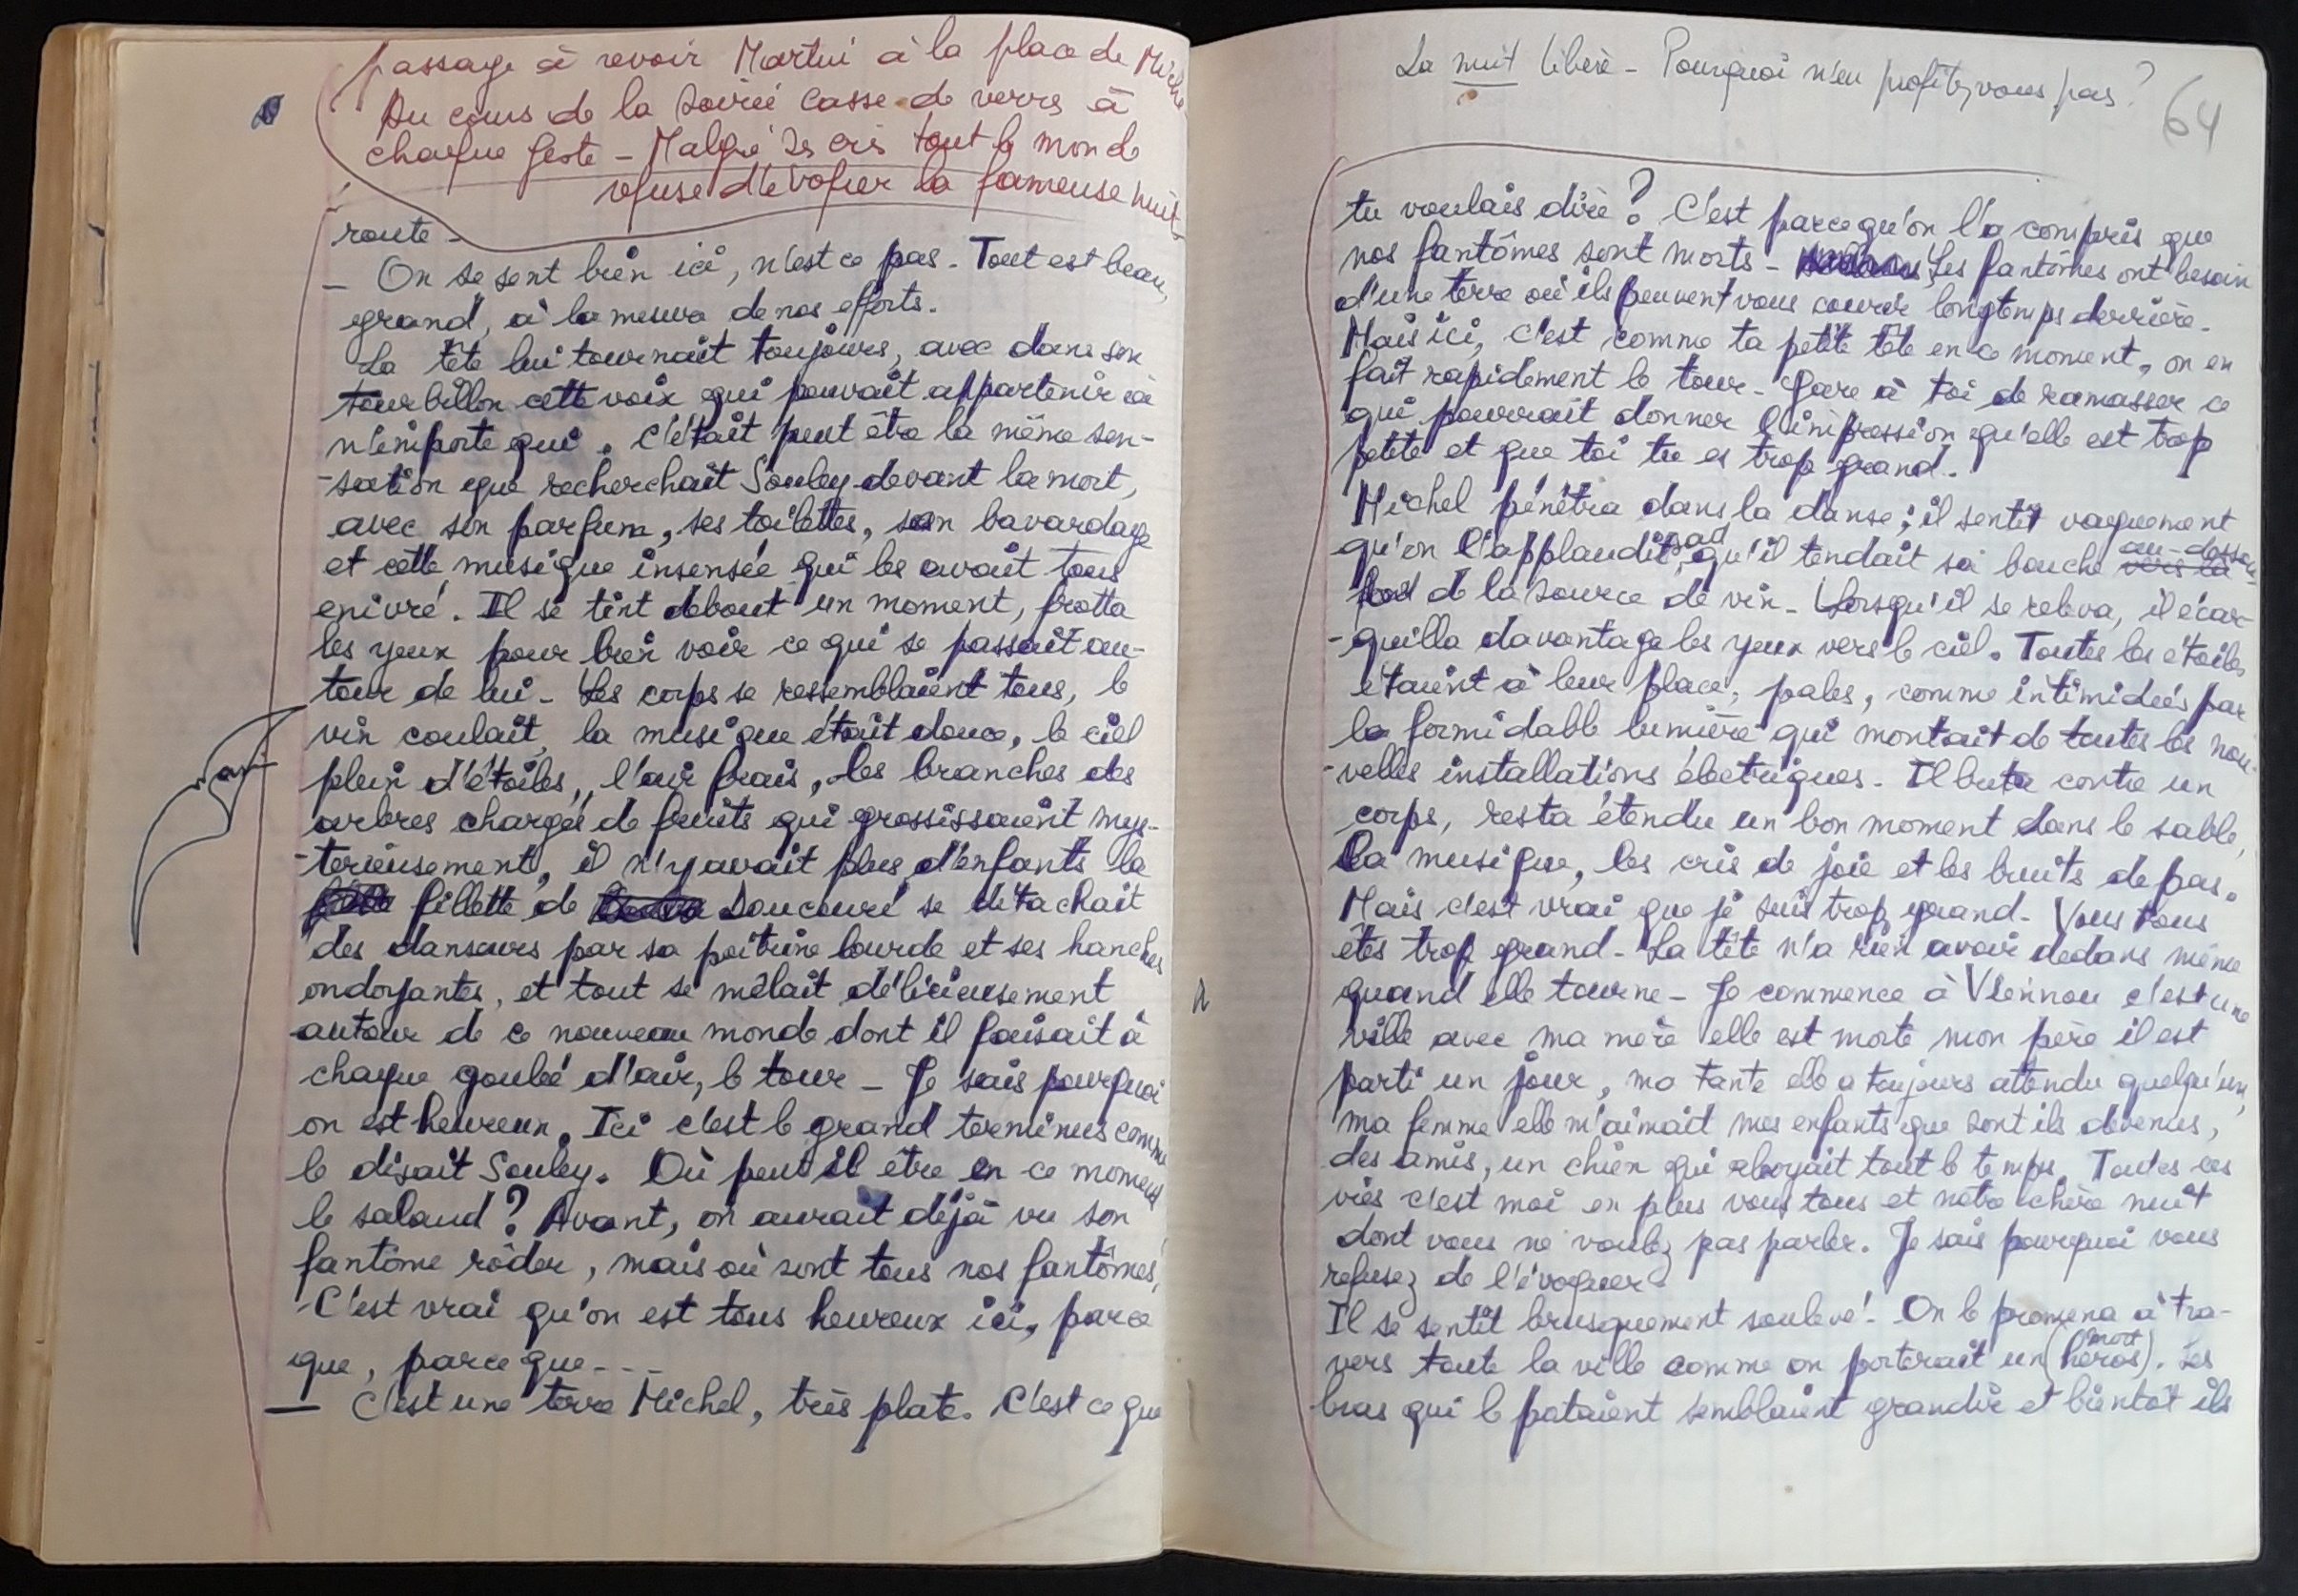 passage à revoir Martin à la place de Michel
Au cours de la soirée casse de verre à
chaque geste - Malgré ses cris tout le monde
refuse d'évoquer la fameuse nuit -
route -
- On se sent bien ici, n'est ce pas. Tout est beau,
grand, à la mesure de nos efforts.
La tête lui tournait toujours, avec dans son
tourbillon cette voix qui pouvait appartenir à
n'importe qui. C'était peut être la même sen-
-sation que recherchait Souley devant la mort,
avec son parfum, ses toilettes, son bavardage
et cette musique insensée qui les avait tous
enivré. Il se tint debout un moment, frotta
les yeux pour bien voir ce qui se passait au-
tour de lui - Les corps se ressemblaient tous, le
vin coulait, la musique était douce, le ciel
plein d'étoiles, l'air frais, les branches des
arbres chargés de fruits qui grossissaient mys-
-terieusement, il n'y avait plus d'enfants la
fillette de Doucouré se détachait
des danseurs par sa poitrine lourde et ses hanches
ondoyantes, et tout se mêlait délicieusement
autour de ce nouveau monde dont il faisait à
chaque goulée d'air, le tour - Je sais pourquoi
on est heureux. Ici c'est le grand terminus comme
le disait Souley. Où peut il être en ce moment
le salaud? Avant, on aurait déjà vu son
fantôme rôder, mais où sont tous nos fantômes,
C'est vrai qu'on est tous heureux ici, parce
que, parce que ---
- C'est une terre Michel, très plate. C'est ce que
La nuit libère - Pourquoi n'en profitez vous pas?
64
tu voulais dire? C'est parce qu'on l'a compris que
nos fantômes sont morts - Les fantômes ont besoin
d'une terre où ils peuvent vous courir longtemps derrière -
Mais ici, c'est comme ta petite tête en ce moment, on en
fait rapidement le tour - Gare à toi de ramasser ce
qui pourrait donner l'impression qu'elle est trop
petite et que toi tu es trop grand.
Michel pénétra dans la danse; il sentit vaguement
qu'on l'applaudissait, qu'il tendait sa bouche vers la au-dessous
de la source de vin - Lorsqu'il se releva, il écar-
-quilla davantage les yeux vers le ciel. Toutes les étoiles
étaient à leur place, pales, comme intimidées par
la formidable lumière qui montait de toutes les nou-
-velles installations électriques - Il buta contre un
corps, resta étendu un bon moment dans le sable,
La musique, les cris de joie et les bruits de pas.
Mais c'est vrai que je suis trop grand - Vous tous
êtes trop grand - La tête n'a rien avoir dedans même
quand elle tourne - Je commence à Vlennou c'est une
ville avec ma mère elle est morte mon père il est
parti un jour, ma tante elle a toujours attendu quelqu'un,
ma femme elle m'aimait mes enfants que sont ils devenus,
des amis, un chien qui aboyait tout le temps. Toutes ces
vies c'est moi en plus vous tous et notre chère nuit
dont vous ne voulez pas parler. Je sais pourquoi vous
refusez de l'évoquer -
Il se sentit brusquement soulevé - On le promena à tra-
vers toute la ville comme on porterait un (héros) mort. Les
bras qui le portaient semblaient grandir et bientôt ils